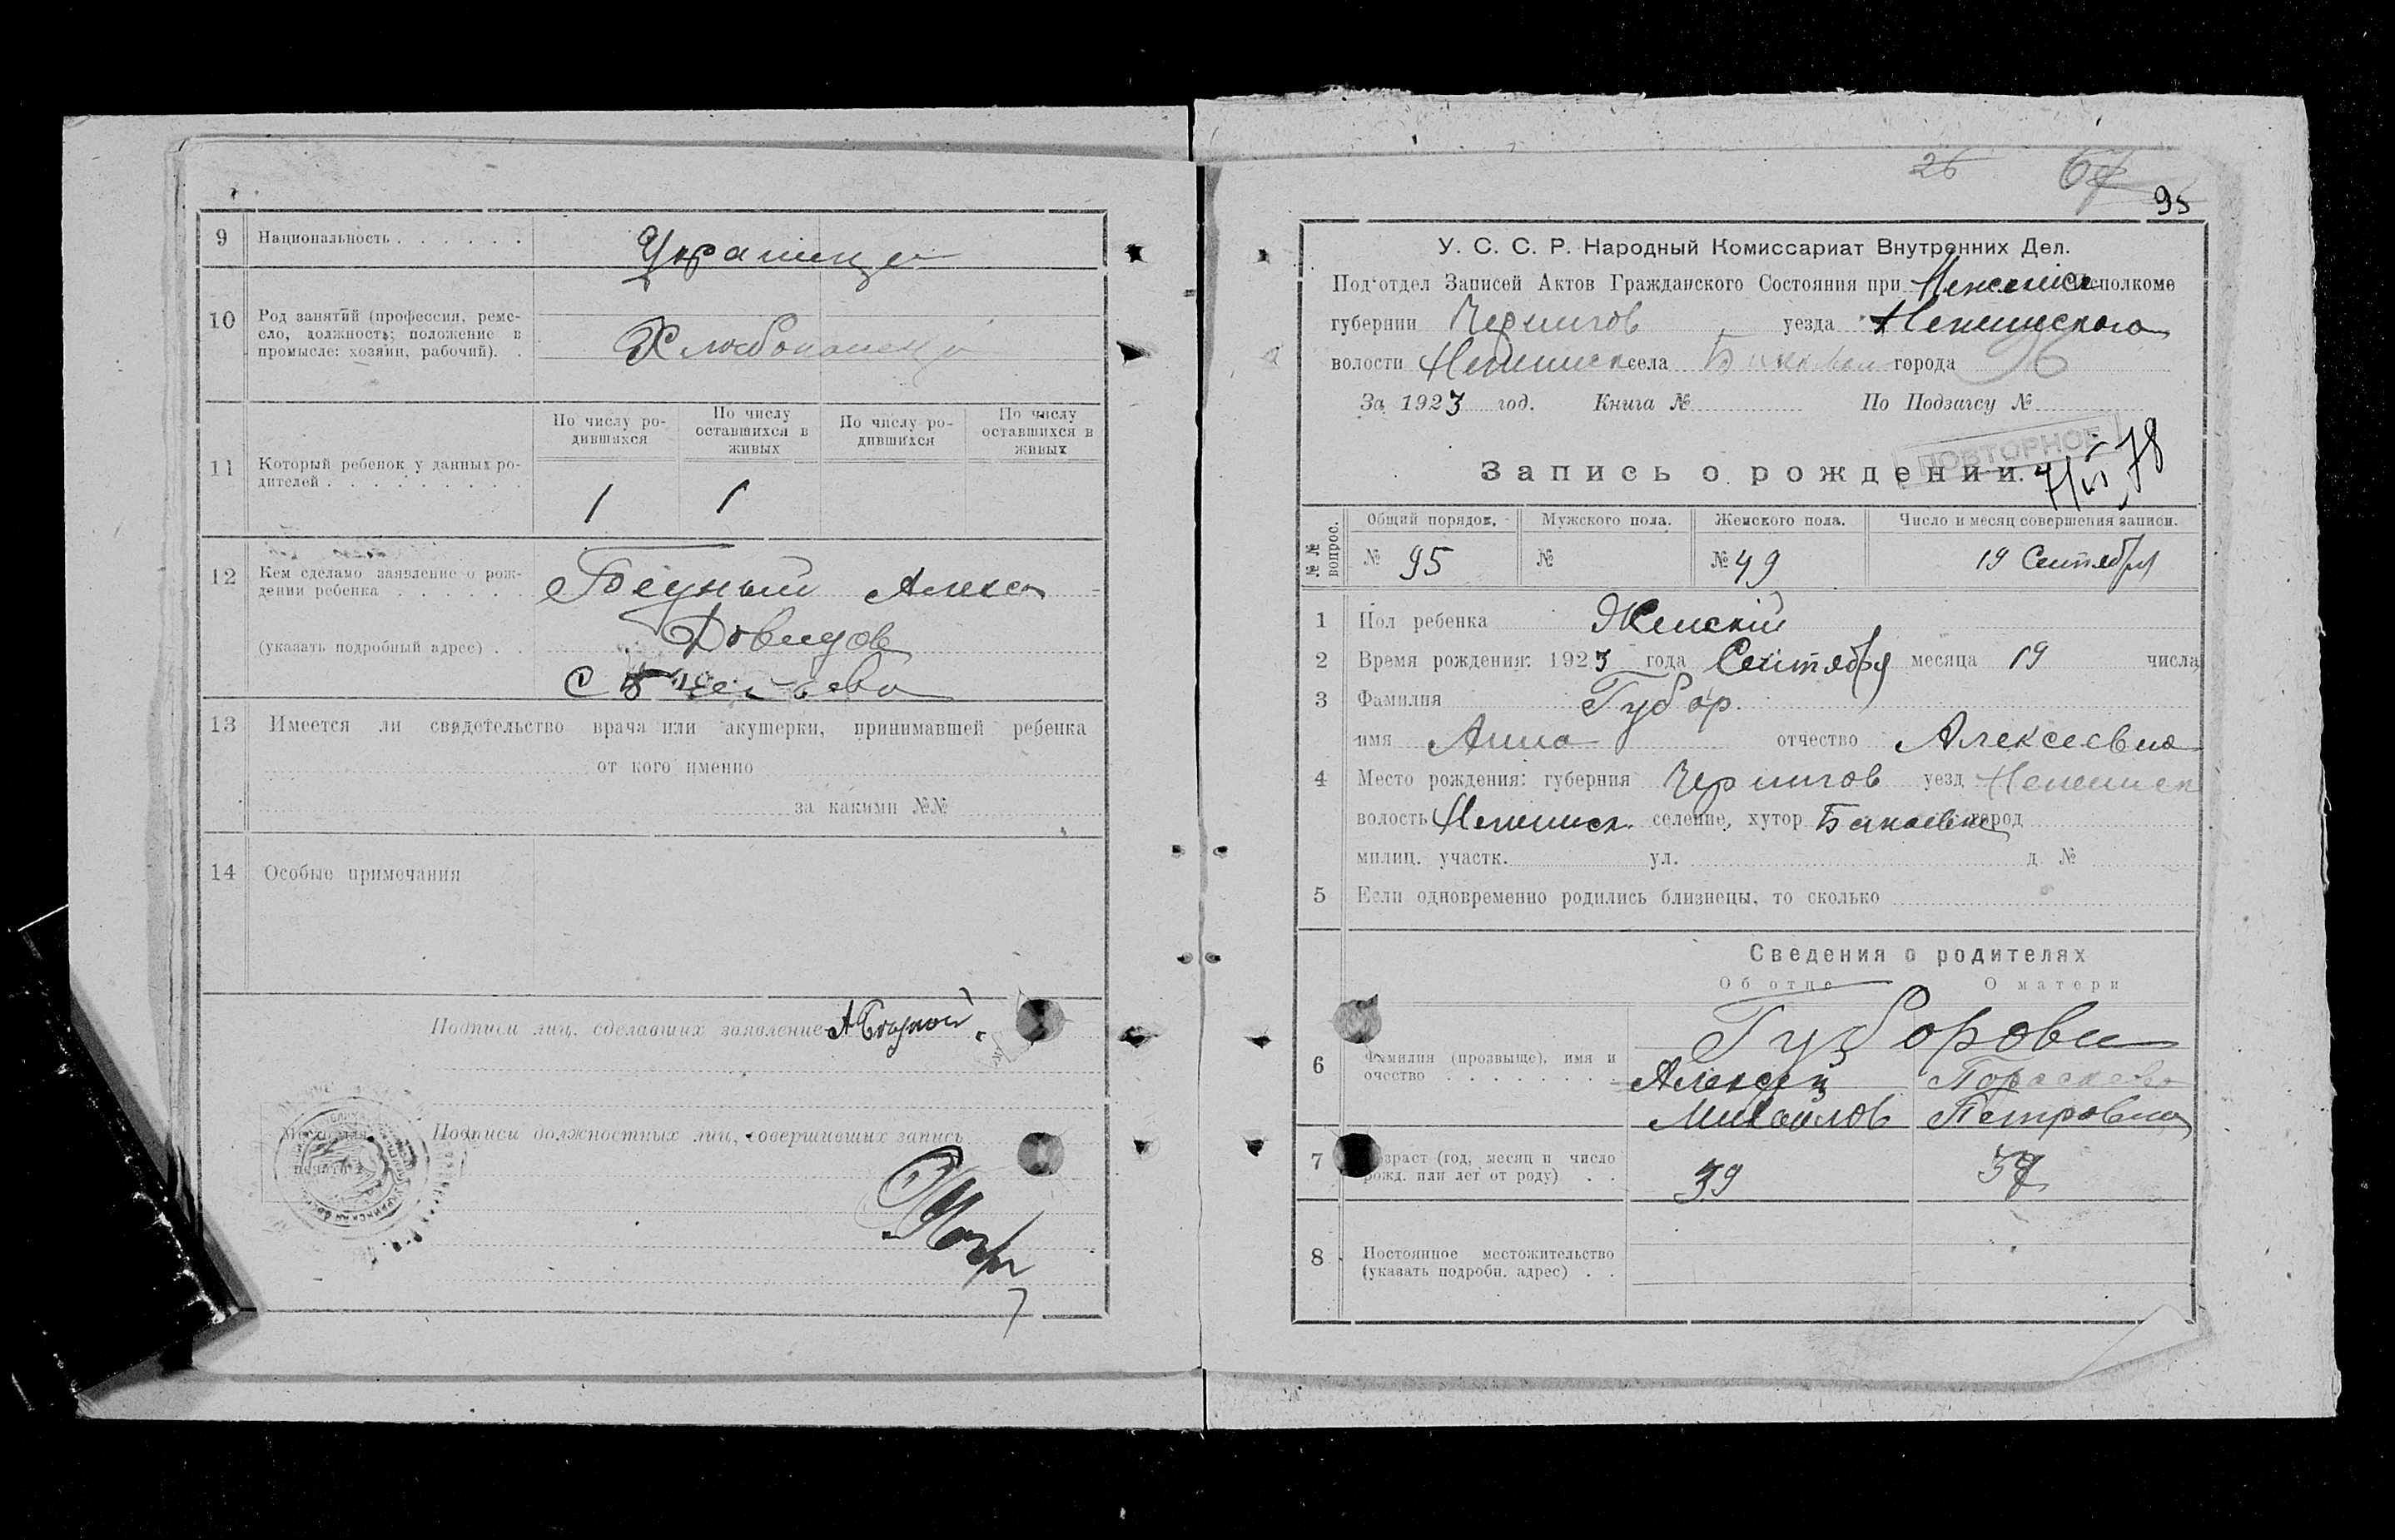 9 Национальность . . . . . .
Украинци
10 Род занятий (профессия, реме-
сло, должность; положение в
промысле: хозяин, рабочий). .
11 Который ребенок у данных ро-
дителей . . . . . . . . .
По числу ро-
дившихся
По числу
оставшихся в
живых
По числу ро-
дившихся
По числу
оставшихся в
живых
1 1
12 Кем сделано заявление о рож-
дении ребенка . . . . . .
(указать подробный адрес) . .
Бедный Алекс
Довидов
13 Имеется ли свидетельство врача или акушерки, принимавшей ребенка
от кого именно
за какими №№
14 Особые примечания
Подписи лиц, сделавших заявление А Бедной
Место для
печати
Подписи должностных лиц, совершивших запись
26 67
95
У. С. С. Р. Народный Комиссариат Внутренних Дел.
Под'отдел Записей Актов Гражданского Состояния при Исполкоме
губернии Чернигов уезда
волости села города
За 1923 год. Книга № По Подзагсу №
ПОВТОРНОЕ
Запись о рождении.
№№ вопрос.
Общий порядок. Мужского пола. Женского пола. Число и месяц совершения записи.
№ 95 № № 49 19 Сентября
1 Пол ребенка Женский
2 Время рождения: 1923 года Сентября месяца 19 числа
3 Фамилия Губор.
имя Анна отчество Алексеевна
4 Место рождения: губерния Чернигов уезд
волость селение, хутор город
милиц. участк. ул. д. №
5 Если одновременно родились близнецы, то сколько
Сведения о родителях
Об отце О матери
6 Фамилия (прозвище), имя и
очество . . . . . . . .
Губорови
Алексей Пораскева
Михайлов Петровна
7 Возраст (год, месяц и число
рожд. или лет от роду) . .
39
8 Постоянное местожительство
(указать подробн. адрес) . .